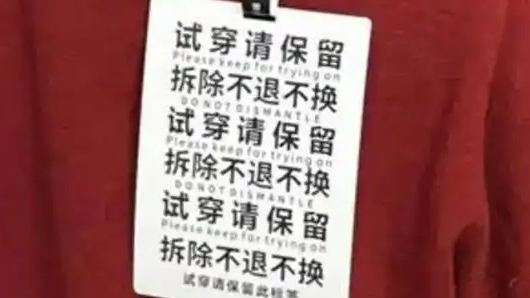 试穿请保留
Please keep for trying on
拆除不退不换
DO NOT DISMANTLE
试穿请保留
Please keep for trying on
拆除不退不换
DO NOT DISMANTLE
试穿请保留
Please keep for trying on
拆除不退不换
试穿请保留此标签